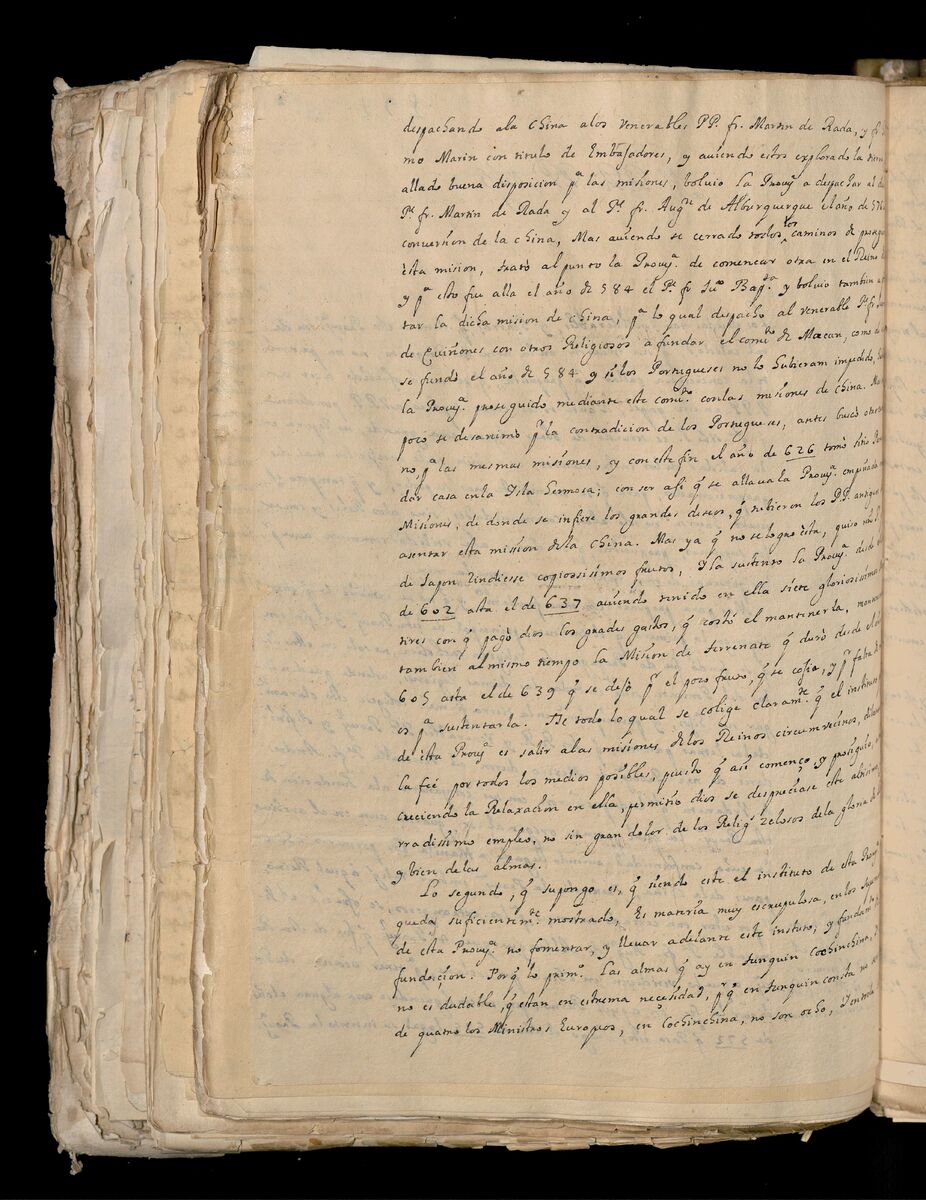 despachando ala China alos venerables PP. fr. Martin de Rada, y fr.
mo Marin con titulo de Embajadores, y auiendo estos explorado la tierra
allado buena disposicion pª las misiones, boluio la Prouª a despachar al
Pe. fr. Martin de Rada y al Pe. fr. Augn de Alburquerque el año de 576
conuersion de la China, Mas auiendo se cerrado todos los caminos de
èsta mision, trató al punto la Prouª. de comencar otra en el Reino
y pª esto fue alla el año de 584 el Pe. fr. Juo Bapta y boluio tambien
tar la dicha mision de China, pª lo qual despacho al venerable Pe. fr.
de Quiñones con otros Religiosos a fundar el comto de Macan, como
se fundó el año de 584 y si los Portugueses no lo hubieran impedido,
la Prouª. proseguido mediante este comto. con las misiones de China.
poco se desanimò pr la contradicion de los Portugueses, antes buscò
no, pª las mesmas misiones, y con este fin el año de 626 tomò sitio
dar casa en la Isla hermosa; con ser asi q̃ se allaua la Prouª. empeñada
Misiones, de donde se infiere los grandes deseos, q̃ tubieron los PP. antiguos
asentar esta mission dela China. Mas ya q̃ no se logro èsta, quiso
de Japon rindiesse copiosissimos frutos, y la sustento la Prouª. desde
de 602 asta el de 637 auiendo tenido en ella siete gloriosissimos
tires con q̃ pagò dios los grades gastos, q̃ costó el mantenerla,
tambien al mismo tiempo la Mision de terrenate q̃ durò desde el
605 asta el de 639 q̃ se dejò pr el poco fruto, q̃ se cogia, y pr falta
os pª sustentarla. De todo lo qual se colige claramte. q̃ el instituto
de èsta Prouª es salir alas misiones delos Reinos circumvecinos,
la fée por todos los medios posibles, puesto q̃ asi començo y prosiguio,
creciendo la Relaxacion en ella, permitio dios se despreciase este
rradissimo empleo, no sin gran dolor de los Religs zelosos dela gloria
y bien delas almas.
Lo segundo, q̃ supongo es, q̃ siendo este el instituto de esta
queda suficientemte. mostrado, Es materia muy escrupulosa, en los
de esta Prouª. no fomentar, y lleuar adelante este instuto, y
fundaçion. Porq̃ lo primo. Las almas q̃ ay en tunquin Cochinchina,
no es dudable, q̃ estan en estrema necesidad, pr q̃ en tunquin consta no
de quatro los Ministros Europeos, en Cochinchina, no son ocho,